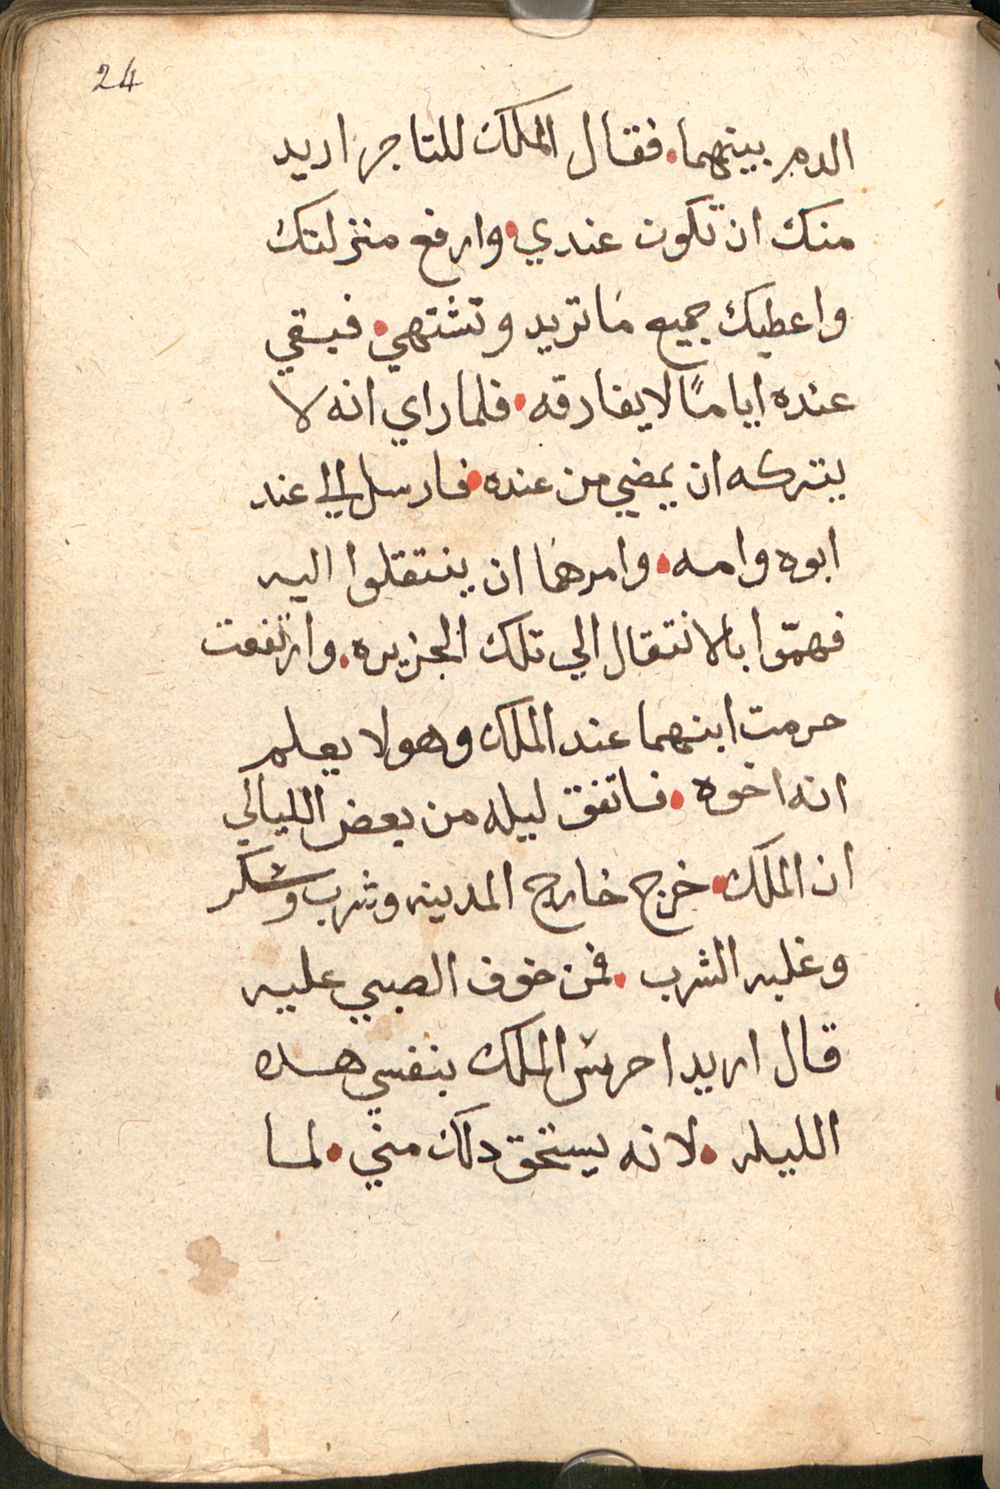 24
الدم بينهما. فقال الملك للتاجر اريد
منك ان تكون عندي. وارفع منزلتك
واعطيك جميع ما تريد وتشتهي. فبقي
عنده ايامًا لا يفارقه. فلما راي انه لا
يتركه ان يمضي من عنده. فارسل الي عند
ابوه وامه. وامرهما ان ينتقلوا اليه
فهمّوا بالانتقال الي تلك الجزيره. وارتفعت
حرمت ابنهما عند الملك وهو لا يعلم
انه اخوه. فاتفق ليله من بعض الليالي
ان الملك. خرج خارج المدينه وشرب وسكر
وغلبه الشرب. فمن خوف الصبي عليه
قال اريد احرس الملك بنفسي هده
الليله. لانه يستحق دلك مني. لما